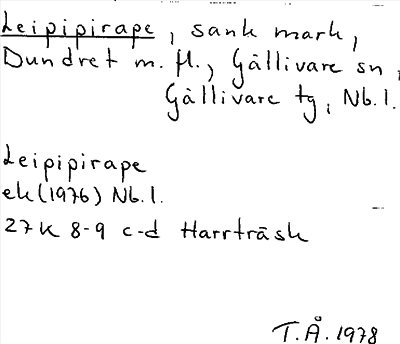 Leipipirape, sank mark,
Dundret m. fl., Gällivare sn,
Gällivare tg, Nb. l.
Leipipirape
ek (1976) Nb. l.
27K 8-9 c-d Harrträsk
T.Å. 1978